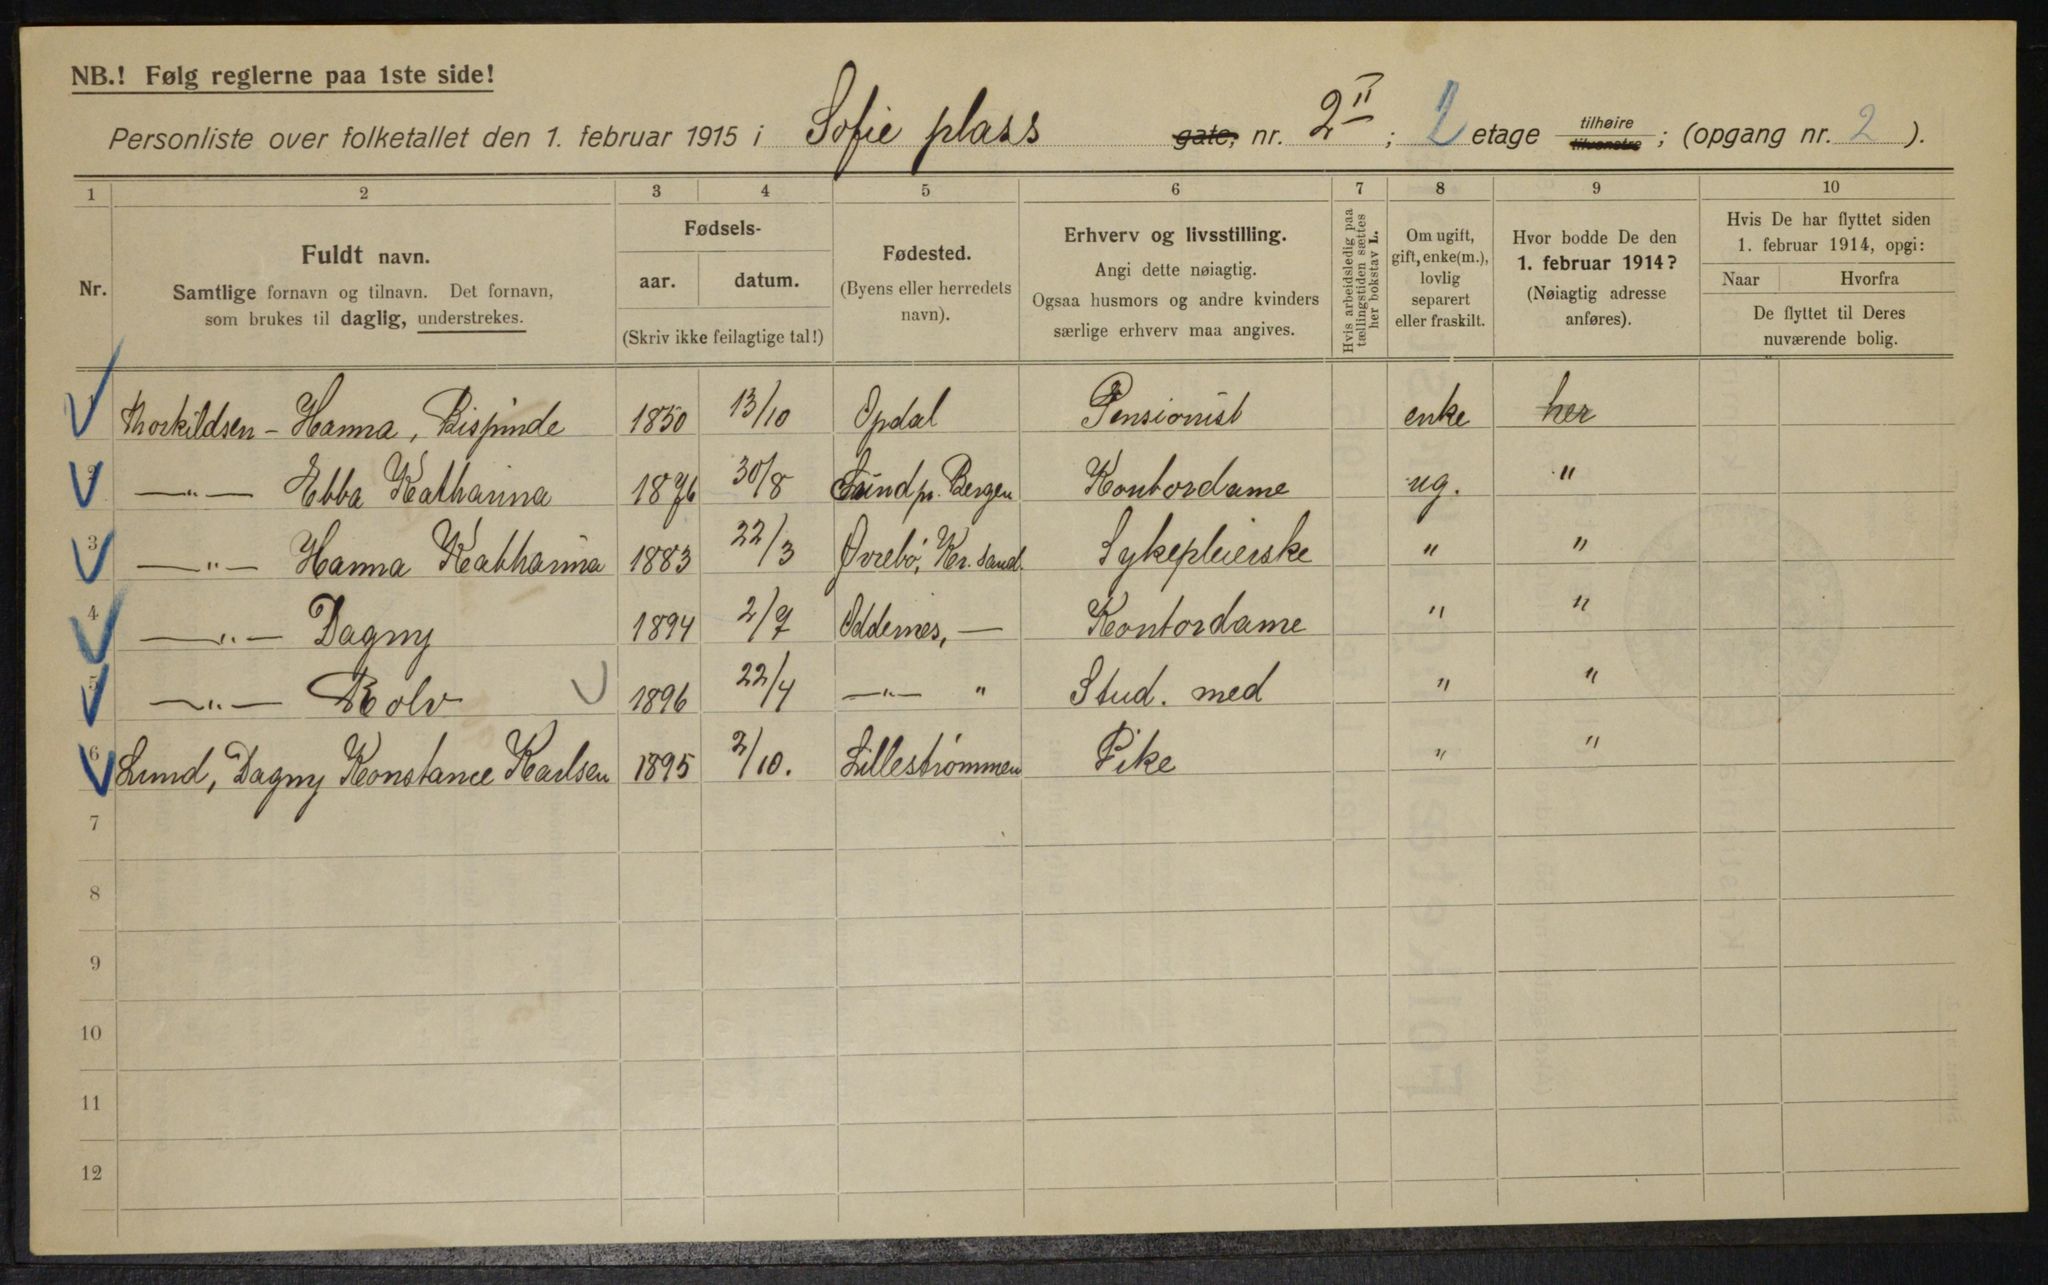 NB.! Følg reglerne paa 1ste side!
Personliste over folketallet den 1. februar 1915 i Sofie plass gate, nr. 2 II ; 2 etage tilhøire tilvenstre ; (opgang nr. 2 ).
1 2 3 4 5 6 7 8 9 10
Nr.
Fuldt navn.
Samtlige fornavn og tilnavn. Det fornavn,
som brukes til daglig, understrekes.
Fødsels-
aar. datum.
(Skriv ikke feilagtige tal!)
Fødested.
(Byens eller herredets
navn).
Erhverv og livsstilling.
Angi dette nøiagtig.
Ogsaa husmors og andre kvinders
særlige erhverv maa angives.
Hvis arbeidsledig paa
tællingstiden sættes
her bokstav L.
Om ugift,
gift, enke(m.),
lovlig
separert
eller fraskilt.
Hvor bodde De den
1. februar 1914?
(Nøiagtig adresse
anføres).
Hvis De har flyttet siden
1. februar 1914, opgi:
Naar Hvorfra
De flyttet til Deres
nuværende bolig.
1 Thorkildsen - Hanna, Bispinde 1850 13/10 Opdal Pensionist enke her
2 —"— Ebba Katharina 1876 30/8 Sund pr. Bergen Kontordame ug. "
3 —"— Hanna Katharina 1883 22/3 Øvrebö, Kr. Sand. Sykepleierske " "
4 —"— Dagny 1894 2/7 Oddernes, — Kontordame " "
5 —"— Rolv 1896 22/4 —"— " Stud. med " "
6 Lund, Dagny Konstance Karlsen 1895 2/10. Lillestrømmen Pike " "
7
8
9
10
11
12